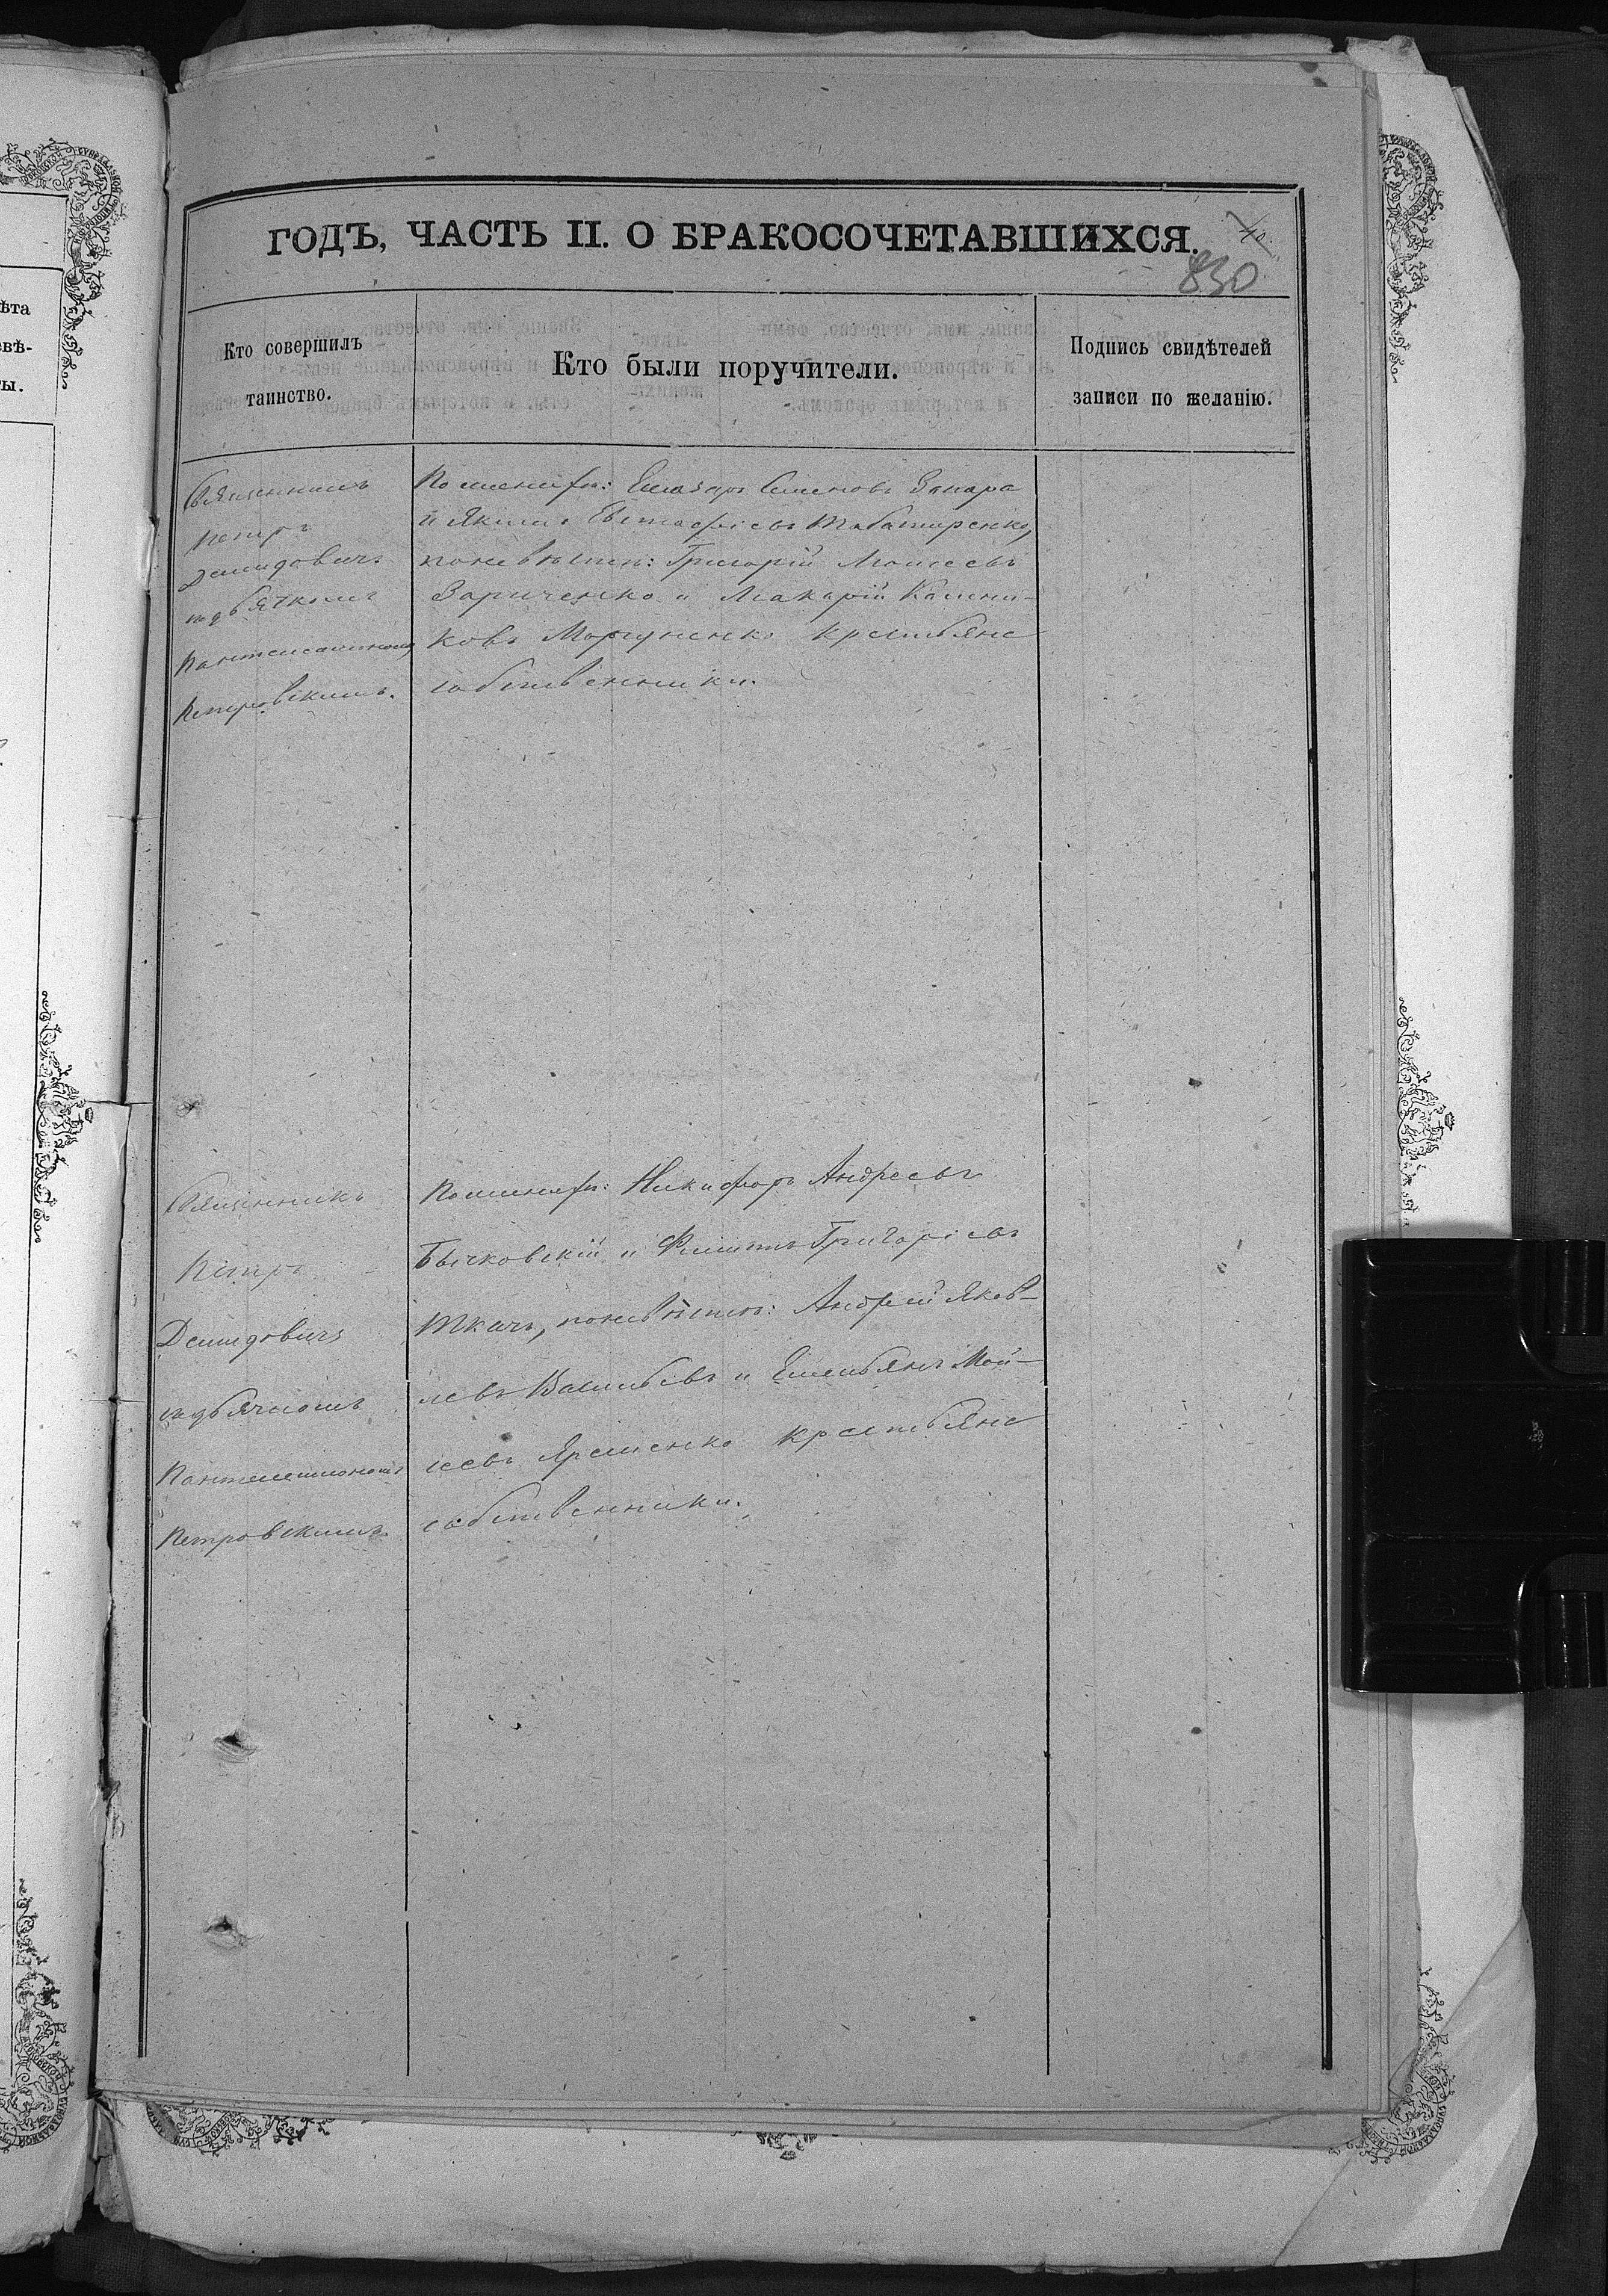 ГОДЪ, ЧАСТЬ II. О БРАКОСОЧЕТАВШИХСЯ.
830
Кто совершилъ
таинство.
Кто были поручители.
Подпись свидѣтелей
записи по желанію.
Священникъ
Петръ
Демидовичъ
съ дьячкомъ
Пантелеимономъ
Петровскимъ.
По женихѣ: Елеазаръ Семеновъ Запара
и Якимъ Евстафіевъ
по невѣстѣ: Григорій Моисеевъ
Зариченко и Макарій Калени-
ковъ Моргуненко крестьяне
собственники.
Священникъ
Петръ
Демидовичъ
съ дьячкомъ
Пантелеимономъ
Петровскимъ.
По женихѣ: Никифоръ Андреевъ
Бычковскій и Филиппъ Григоріевъ
Ткачъ, по невѣстѣ: Андрей Яков-
левъ Васильевъ и Емельянъ Мой-
сеевъ Яременко крестьяне
собственники.
ѣта
евѣ-
ты.